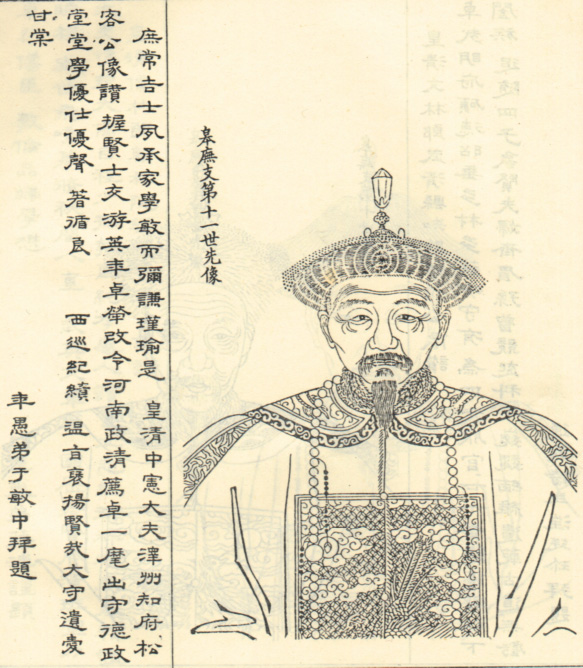 皋廡支第十一世先像
庶常吉士夙承家學敏而彌謙瑾瑜是 皇清中憲大夫澤州知府松
客公像讚 握賢士交游英年卓犖改令河南政清薦卓一麾出守德政
堂堂學優仕優聲 著循良 西巡紀績 温言襃揚賢哉大守遺愛
甘棠
年愚弟于敏中拜題